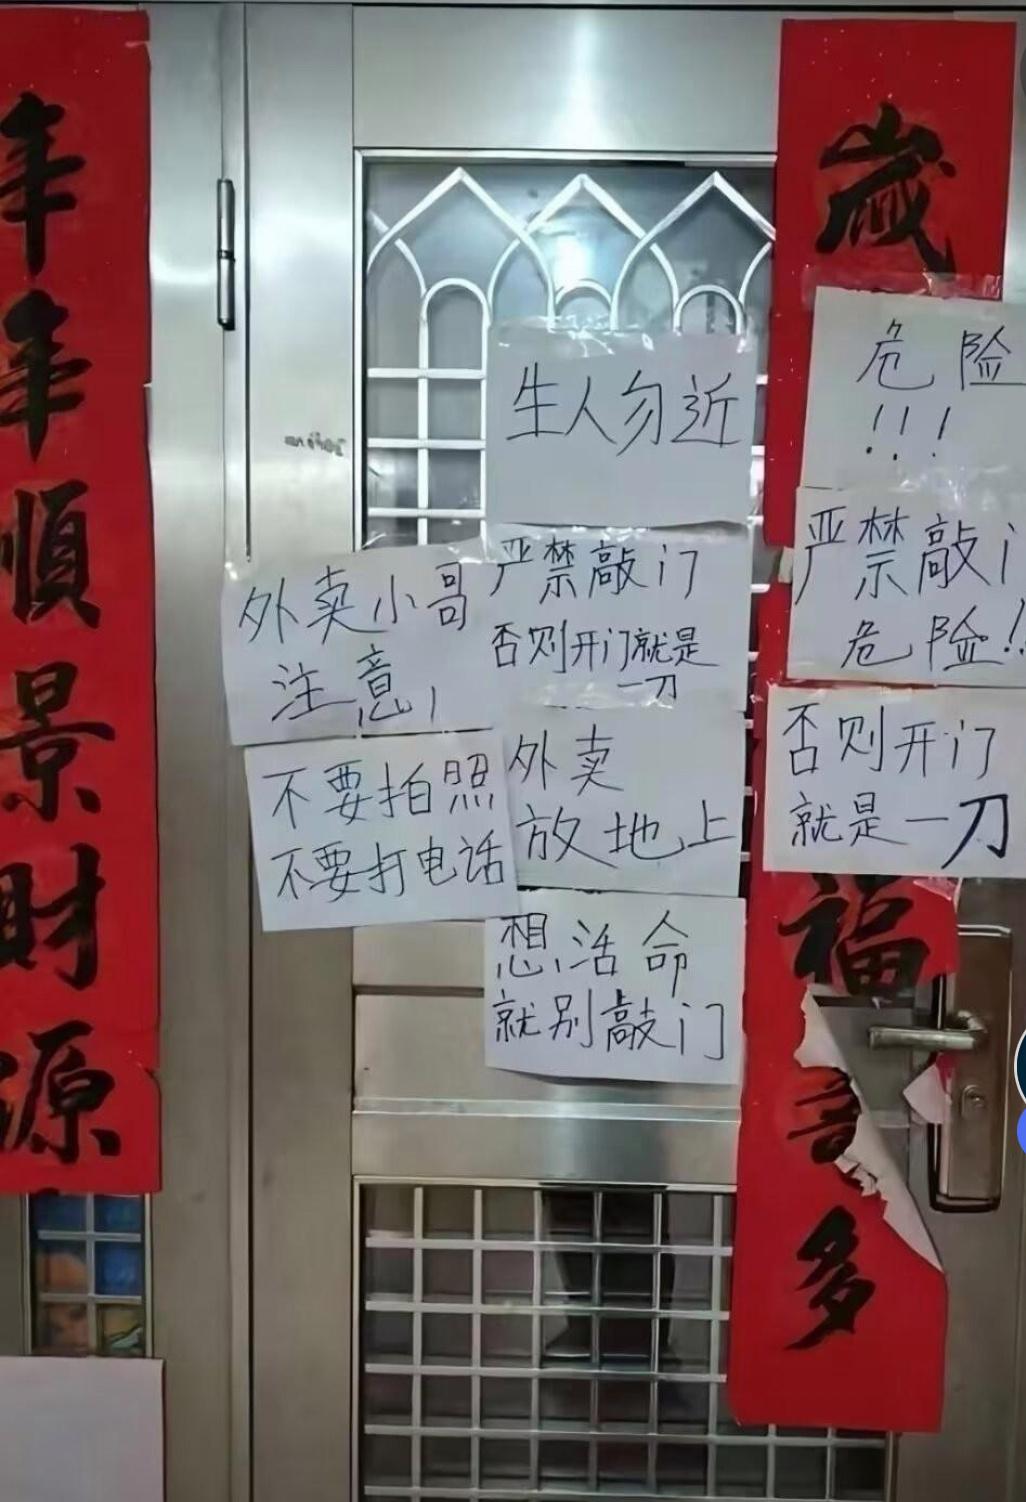 年年順景財源
生人勿近
严禁敲门
否则开门就是
一刀
外卖小哥
注意!
不要拍照
不要打电话
外卖
放地上
想活命
就别敲门
歲
危险
!!!
严禁敲门
危险!
否则开门
就是一刀
福
多